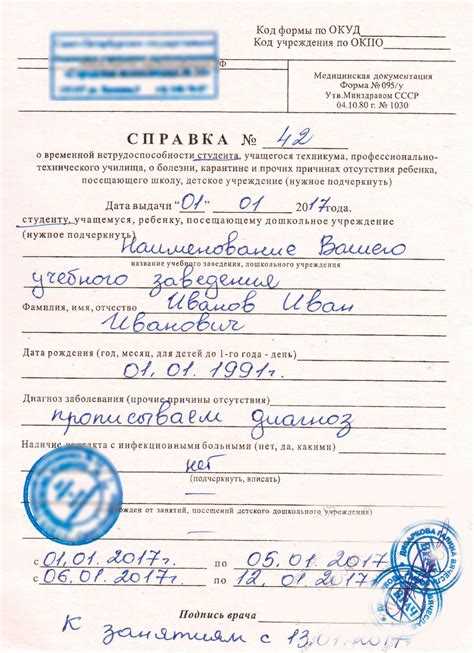 Код формы по ОКУД
Код учреждения по ОКПО
Медицинская документация
Форма № 095/у
Утв.Минздравом СССР
04.10.80 г. № 1030
СПРАВКА № 42
о временной нетрудоспособности студента, учащегося техникума, профессионально-
технического училища, о болезни, карантине и прочих причинах отсутствия ребенка,
посещающего школу, детское учреждение (нужное подчеркнуть)
Дата выдачи "01" 01 2017 года,
студенту, учащемуся, ребенку, посещающему дошкольное учреждение
(нужное подчеркнуть) Наименование Вашего
название учебного заведения, дошкольного учреждения
учебного заведения
Фамилия, имя, отчество Иванов Иван
Иванович
Дата рождения (год, месяц, для детей до 1-го года - день)
01.01.1991г.
Диагноз заболевания (прочие причины отсутствия)
прописываем диагноз
Наличие контакта с инфекционными больными (нет, да, какими)
нет
(подчеркнуть, вписать)
от занятий, посещений детского дошкольного учреждения)
с 01.01.2017г. по 05.01.2017
с 06.01.2017г. по 12.01.2017
Подпись врача
К занятиям с 13.01.2017